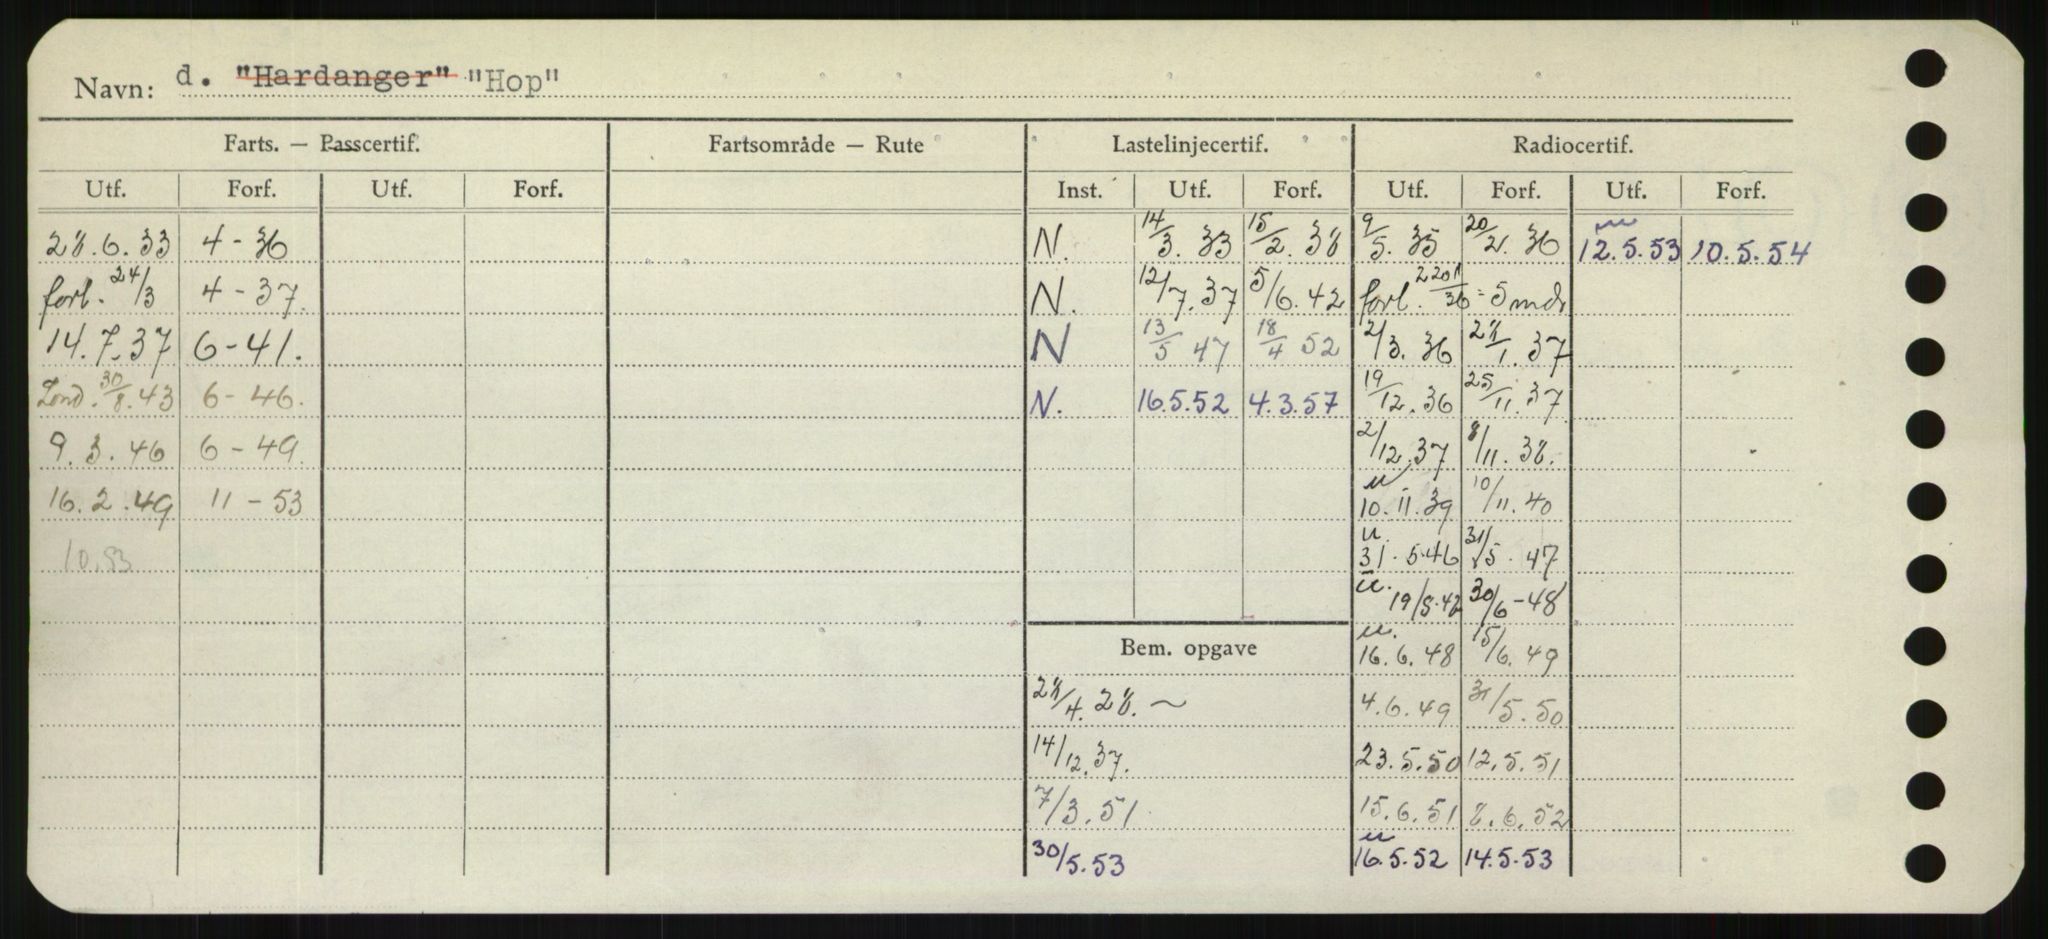 Navn: d. "Hardanger" "Hop"
Farts. — Passcertif. Fartsområde — Rute Lastelinjecertif. Radiocertif.
Utf. Forf. Utf. Forf. Inst. Utf. Forf. Utf. Forf. Utf. Forf.
28.6.33 4-36 N. 14/3.33 15/2.38 9/5.35 20/2.36 12.5.53 10.5.54
forl. 24/3 4-37. N. 12/7.37 5/6.42 forl. = 5 mdr
14.7.37 6-41. N 13/5 47 18/4 52 2/3.36 28/1.37
Lond. 30/8.43 6-46. N. 16.5.52 4.3.57 19/12.36 25/11.37
9.3.46 6-49. 2/12.37 8/11.38.
16.2.49 11-53 u 10.11.39 10/11.40
10.53 u. 31.5.46 31/5.47
u. 19/8.47 30/6-48
Bem. opgave u. 16.6.48 15/6.49
28/4.28. ~ 4.6.49 31/5.50
14/12.37. 23.5.50 12.5.51
7/3.51 15.6.51 8.6.52
30/5.53 u 16.5.52 14.5.53